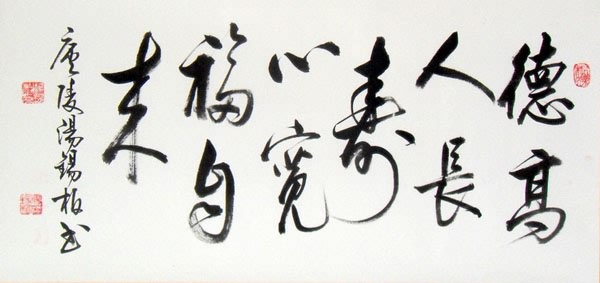 德高
人長
壽
心寬
福自
来
廬陵湯錫板书